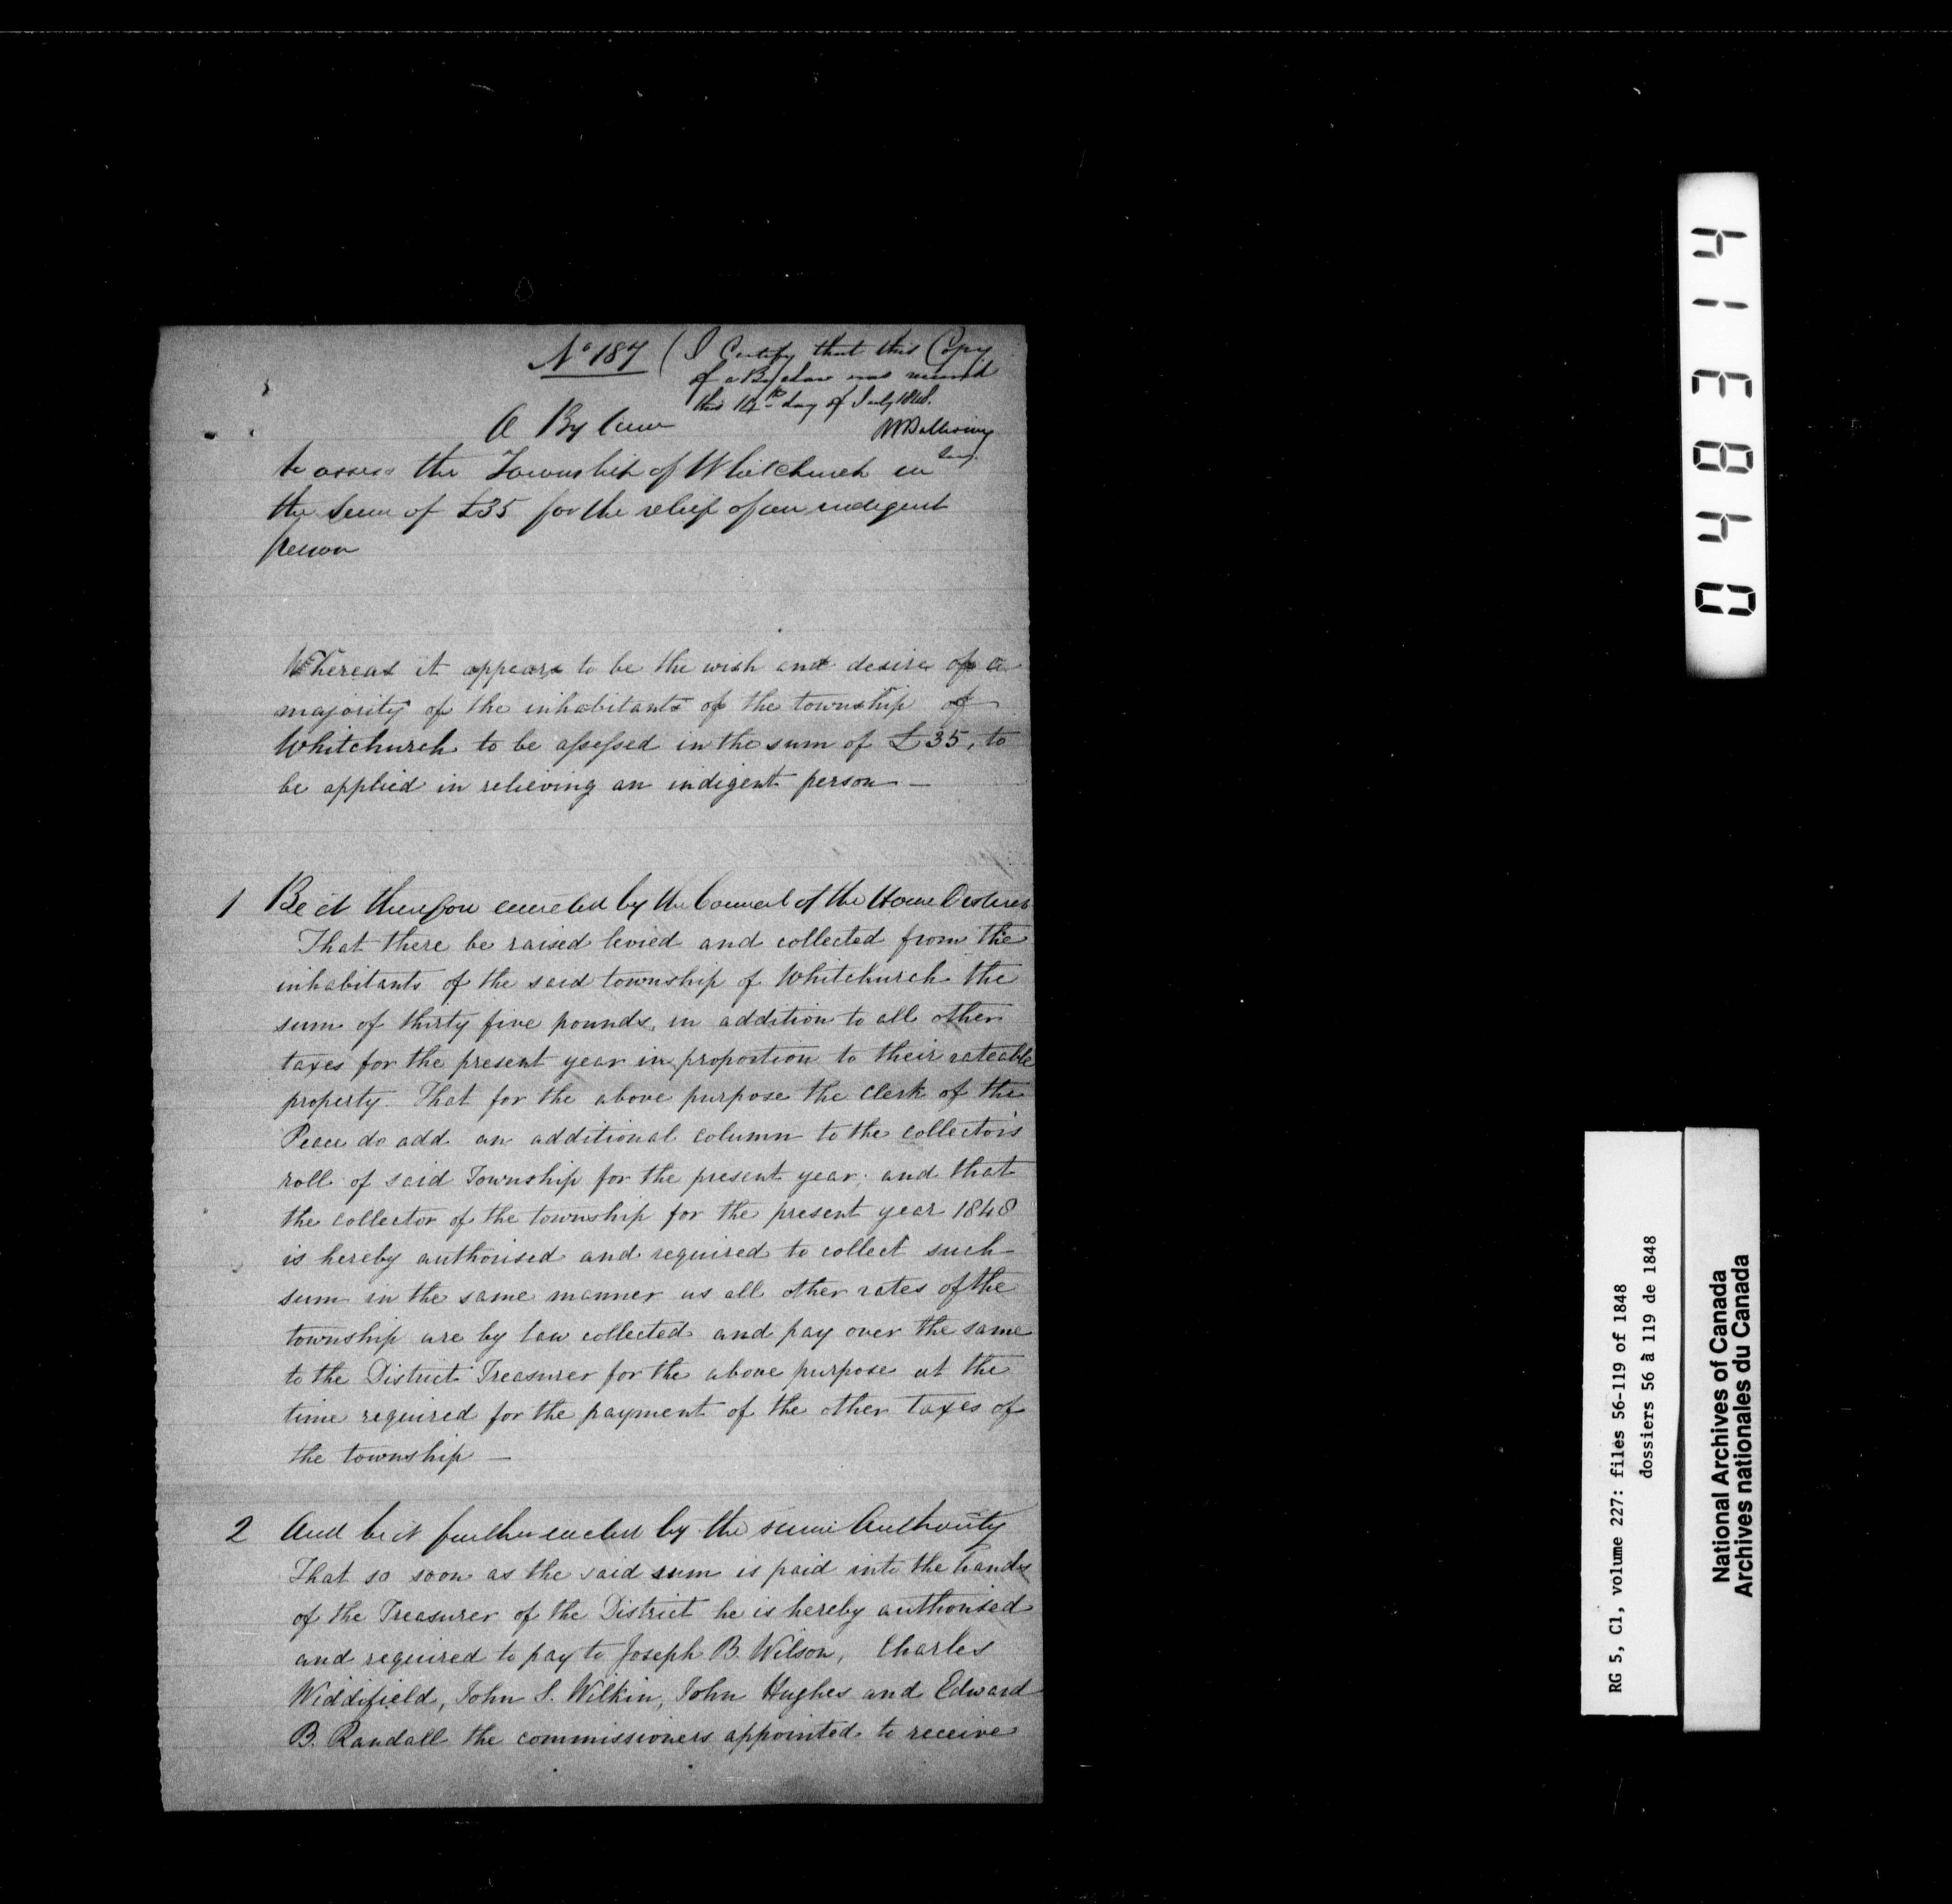 No 187
( I Certify that this Copy
of a By law was received
this 14th day of July 1848.
A By law
to assess the Township of Whitchurch in
the Sum of £35 for the relief of an indigent
person
Whereas it appears to be the wish and desire of a
majority of the inhabitants of the township of
Whitchurch to be assessed in the sum of £35, to
be applied in relieving an indigent person —
1 Be it therefore enacted by the Council of the Home District
That there be raised levied and collected from the
inhabitants of the said township of Whitchurch the
sum of thirty five pounds, in addition to all other
taxes for the present year in proportion to their rateable
property. That for the above purpose the Clerk of the
Peace do add an additional column to the collector's
roll of said Township for the present year, and that
the collector of the township for the present year 1848
is hereby authorised and required to collect such
sum in the same manner as all other rates of the
township are by law collected and pay over the same
to the District Treasurer for the above purpose at the
time required for the payment of the other taxes of
the township —
2 And be it further enacted by the same Authority
That so soon as the said sum is paid into the hands
of the Treasurer of the District he is hereby authorised
and required to pay to Joseph B. Wilson, Charles
Widdifield, John S. Wilkin, John Hughes and Edward
B. Randall the commissioners appointed to receive
048314
RG 5, C1, volume 227: files 56-119 of 1848
dossiers 56 à 119 de 1848
National Archives of Canada
Archives nationales du Canada